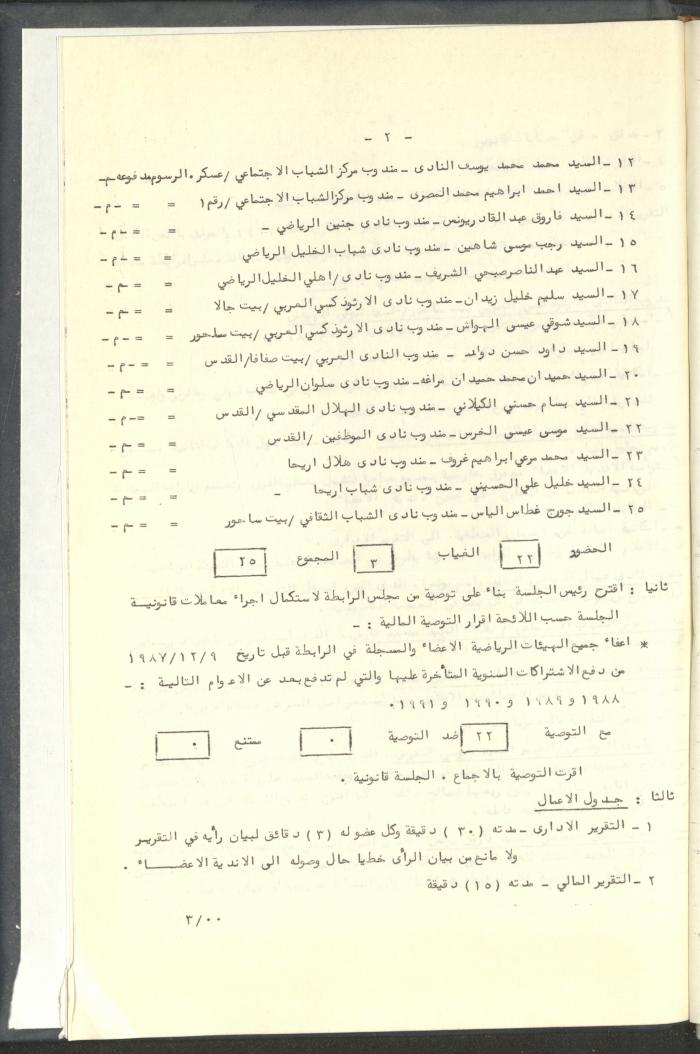 - ٢ -
١٢ - السيد محمد محمد يوسف النادى - مندوب مركز الشباب الاجتماعي /عسكر . الرسوم مدفوعه -م-
١٣ - السيد احمد ابراهيم محمد المصرى - مندوب مركز الشباب الاجتماعي /رقم ١ = = -م-
١٤ - السيد فاروق عبد القادر يونس - مندوب نادى جنين الرياضي - = = -م-
١٥ - السيد رجب موسى شاهين - مندوب نادى شباب الخليل الرياضي = = -م-
١٦ - السيد عبد الناصر صبحي الشريف - مندوب نادى /اهلي الخليل الرياضي = = -م-
١٧ - السيد سليم خليل زيدان - مندوب نادى الارثوذكسي العربي /بيت جالا = = -م-
١٨ - السيد شوقي عيسى الهواش - مندوب نادى الارثوذكسي العربي /بيت ساحور = = -م-
١٩ - السيد داود حسن - مندوب النادى العربي /بيت صفافا/القدس = = -م-
٢٠ - السيد حميدان محمد حميدان مراغه - مندوب نادى سلوان الرياضي = = -م-
٢١ - السيد بسام حسني الكيلاني - مندوب نادى الهلال المقدسي /القدس = = -م-
٢٢ - السيد موسى عيسى الخرس - مندوب نادى الموظفين /القدس = = -م-
٢٣ - السيد محمد مرعي ابراهيم غروف - مندوب نادى هلال اريحا = = -م-
٢٤ - السيد خليل علي الحسيني - مندوب نادى شباب اريحا - = = -م-
٢٥ - السيد جورج غطاس الياس - مندوب نادى الشباب الثقافي /بيت ساحور = = -م-
الحضور ٢٢ الغياب ٣ المجموع ٢٥
ثانيا : اقترح رئيس الجلسة بناء على توصية من مجلس الرابطة لاستكمال اجراء معاملات قانونيسة
الجلسة حسب اللائحة اقرار التوصية المالية : -
* اعفاء جميع الهيئات الرياضية الاعضاء والمسجلة في الرابطة قبل تاريخ ١٩٨٧/١٢/٩
من دفع الاشتراكات السنوية المتأخرة عليها والتي لم تدفع بعد عن الاعوام التالية : -
١٩٨٨ و ١٩٨٩ و ١٩٩٠ و ١٩٩١ .
مع التوصية ٢٢ ضد التوصية ٠ ممتنع ٠
اقرت التوصية بالاجماع . الجلسة قانونية .
ثالثا : جدول الاعمال
١ - التقرير الادارى - مدته (٣٠) دقيقة وكل عضو له (٣) دقائق لبيان رأيه في التقرير
ولا مانع من بيان الرأى خطيا حال وصوله الى الاندية الاعضاء .
٢ - التقرير المالي - مدته (١٥) دقيقة
٣/٠٠